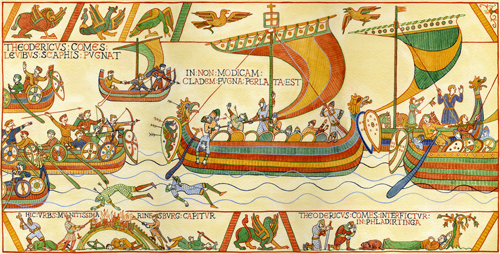 THEODERICVS : COMES :
LEVIBVS : SCAPHIS : PVGNAT
IN : NON : MODICAM :
CLADEM : PVGNA : PERLATA : EST
HIC VRBS : MVNITISSIMA
RINESBVRG : CAPITVR
THEODERICVS : COMES : INTERFICITVR :
IN PHLADIRTINGA